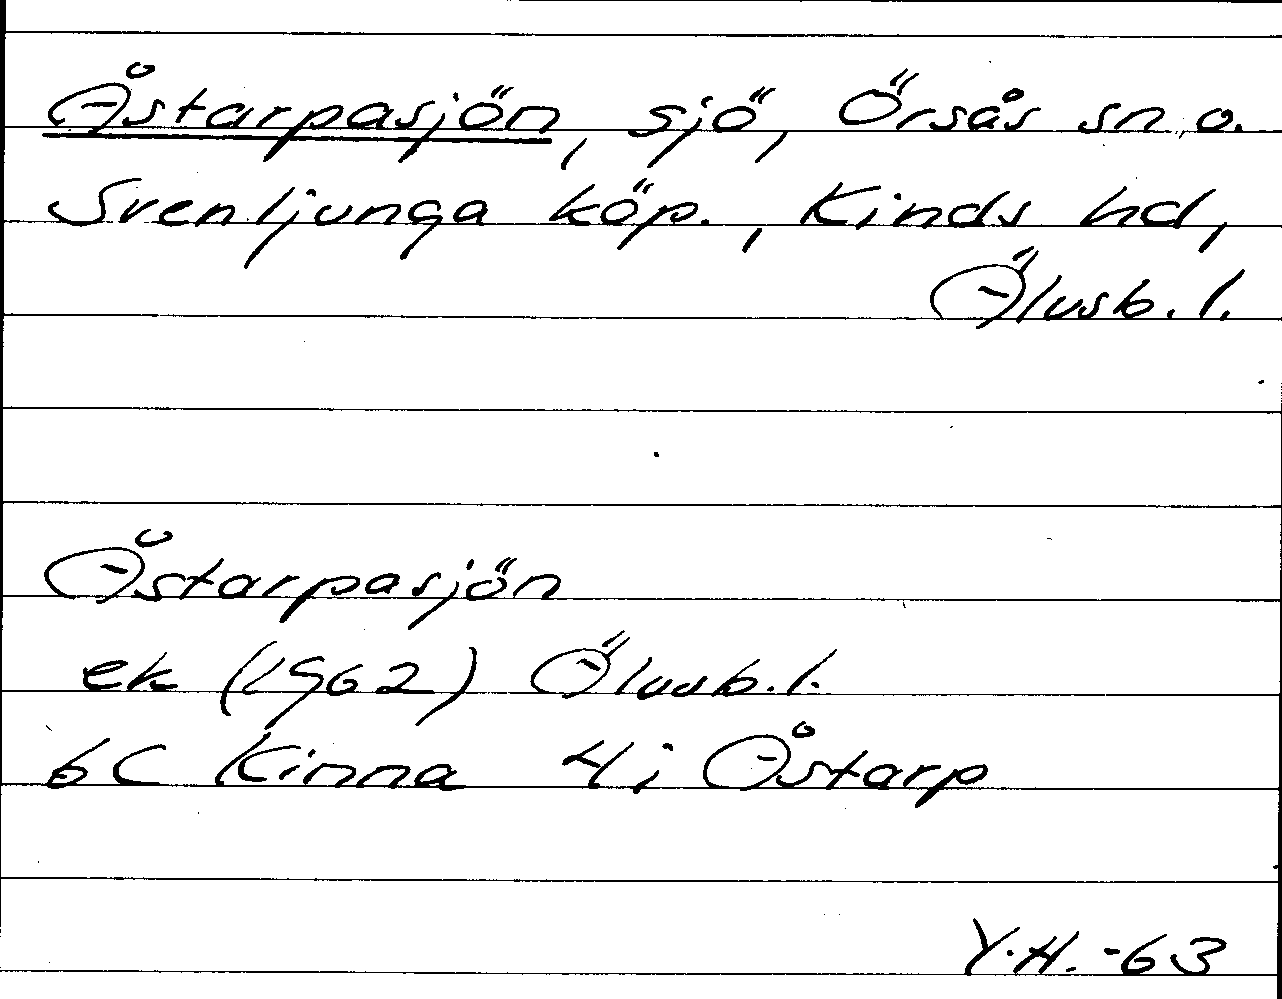 Åstarpasjön, sjö, Örsås sn o.
Svenljunga köp., Kinds hd,
Älvsb. l.
Åstarpasjön
ek (1962) Älvsb. l.
6C Kinna 4i Åstarp
Y.H. -63